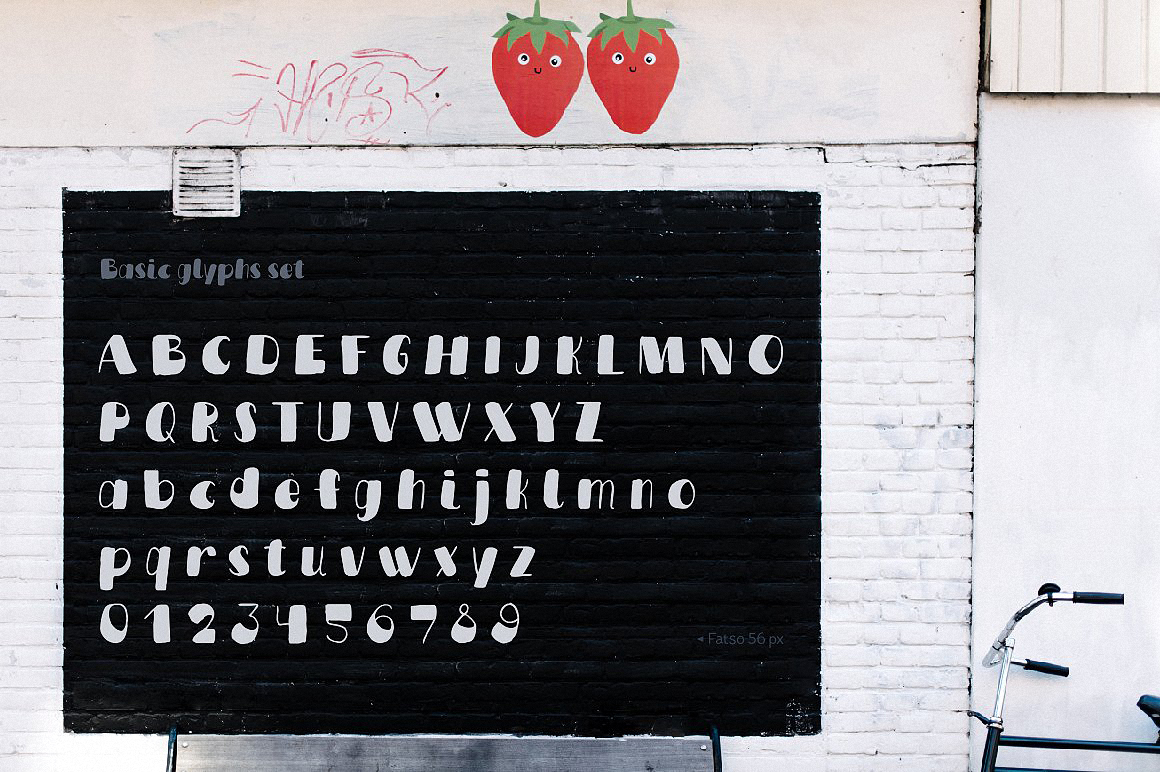 Basic glyphs set
ABCDEFGHIJKLMNO
PQRSTUVWXYZ
abcdefghijklmno
pqrstuvwxyz
0123456789
◂ Fatso 56 px